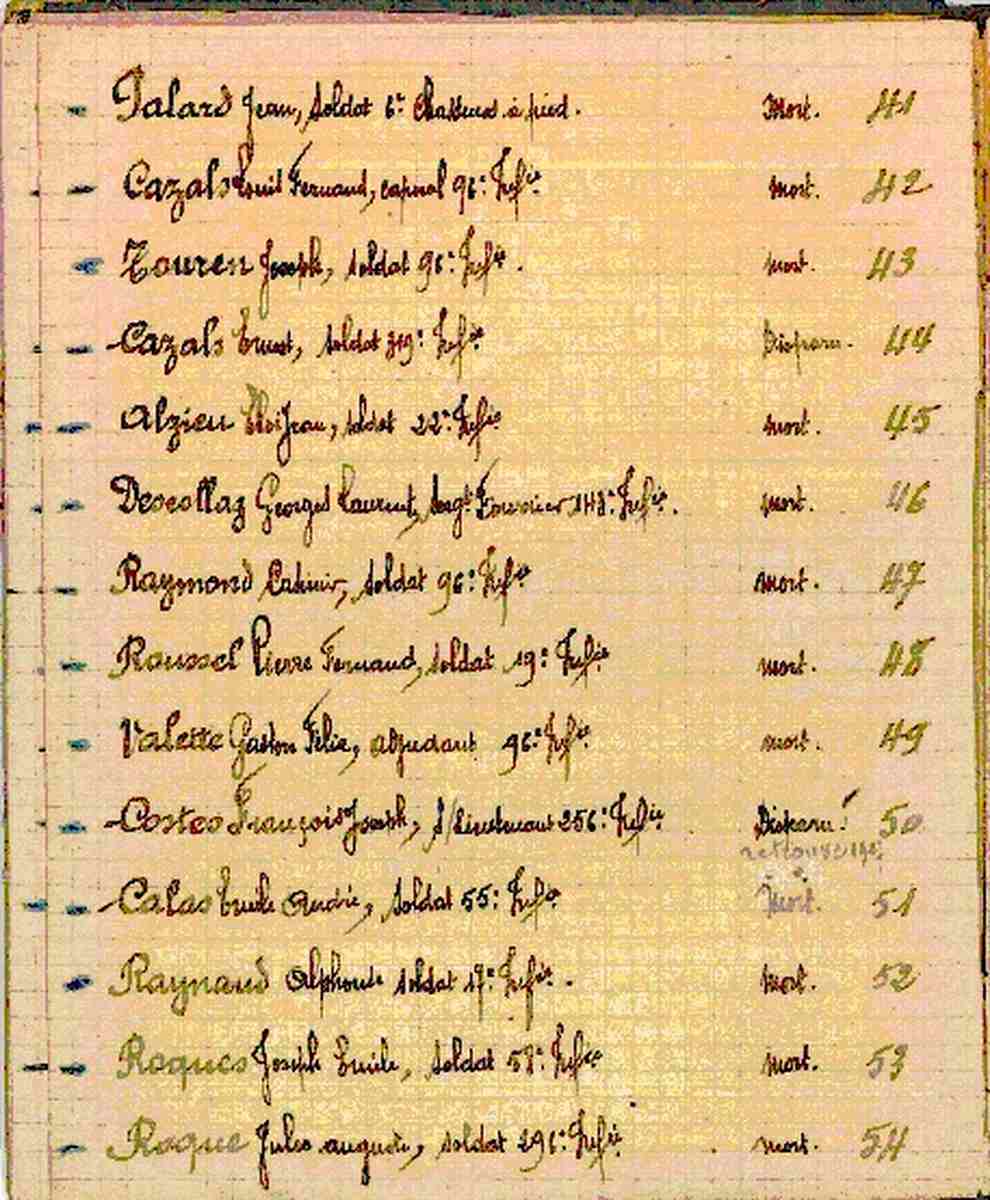 Galard Jean, soldat 6e Chasseurs à pied. Mort. 41
Cazals Louis Fernand, caporal 96e Infie Mort. 42
Touren Joseph, soldat 96e Infie. Mort. 43
Cazals Ernest, soldat 319e Infie Disparu. 44
Alzieu Eloi Jean, soldat 22e Infie Mort. 45
Descollaz Georges Laurent, Sergt Fourrier 143e Infie. Mort. 46
Raymond Casimir, soldat 96e Infie Mort. 47
Roussel Pierre Fernand, soldat 19e Infie Mort. 48
Valette Gaston Félix, adjudant 96e Infie Mort. 49
Costes François Joseph, S/Lieutenant 256e Infie Disparu! 50
retrouvé
Calas Emile André, soldat 55e Infie Mort. 51
Raynaud Alphonse soldat 17e Infie. Mort. 52
Roques Joseph Emile, soldat 58e Infie Mort. 53
Roque Jules Auguste, soldat 296e Infie Mort. 54